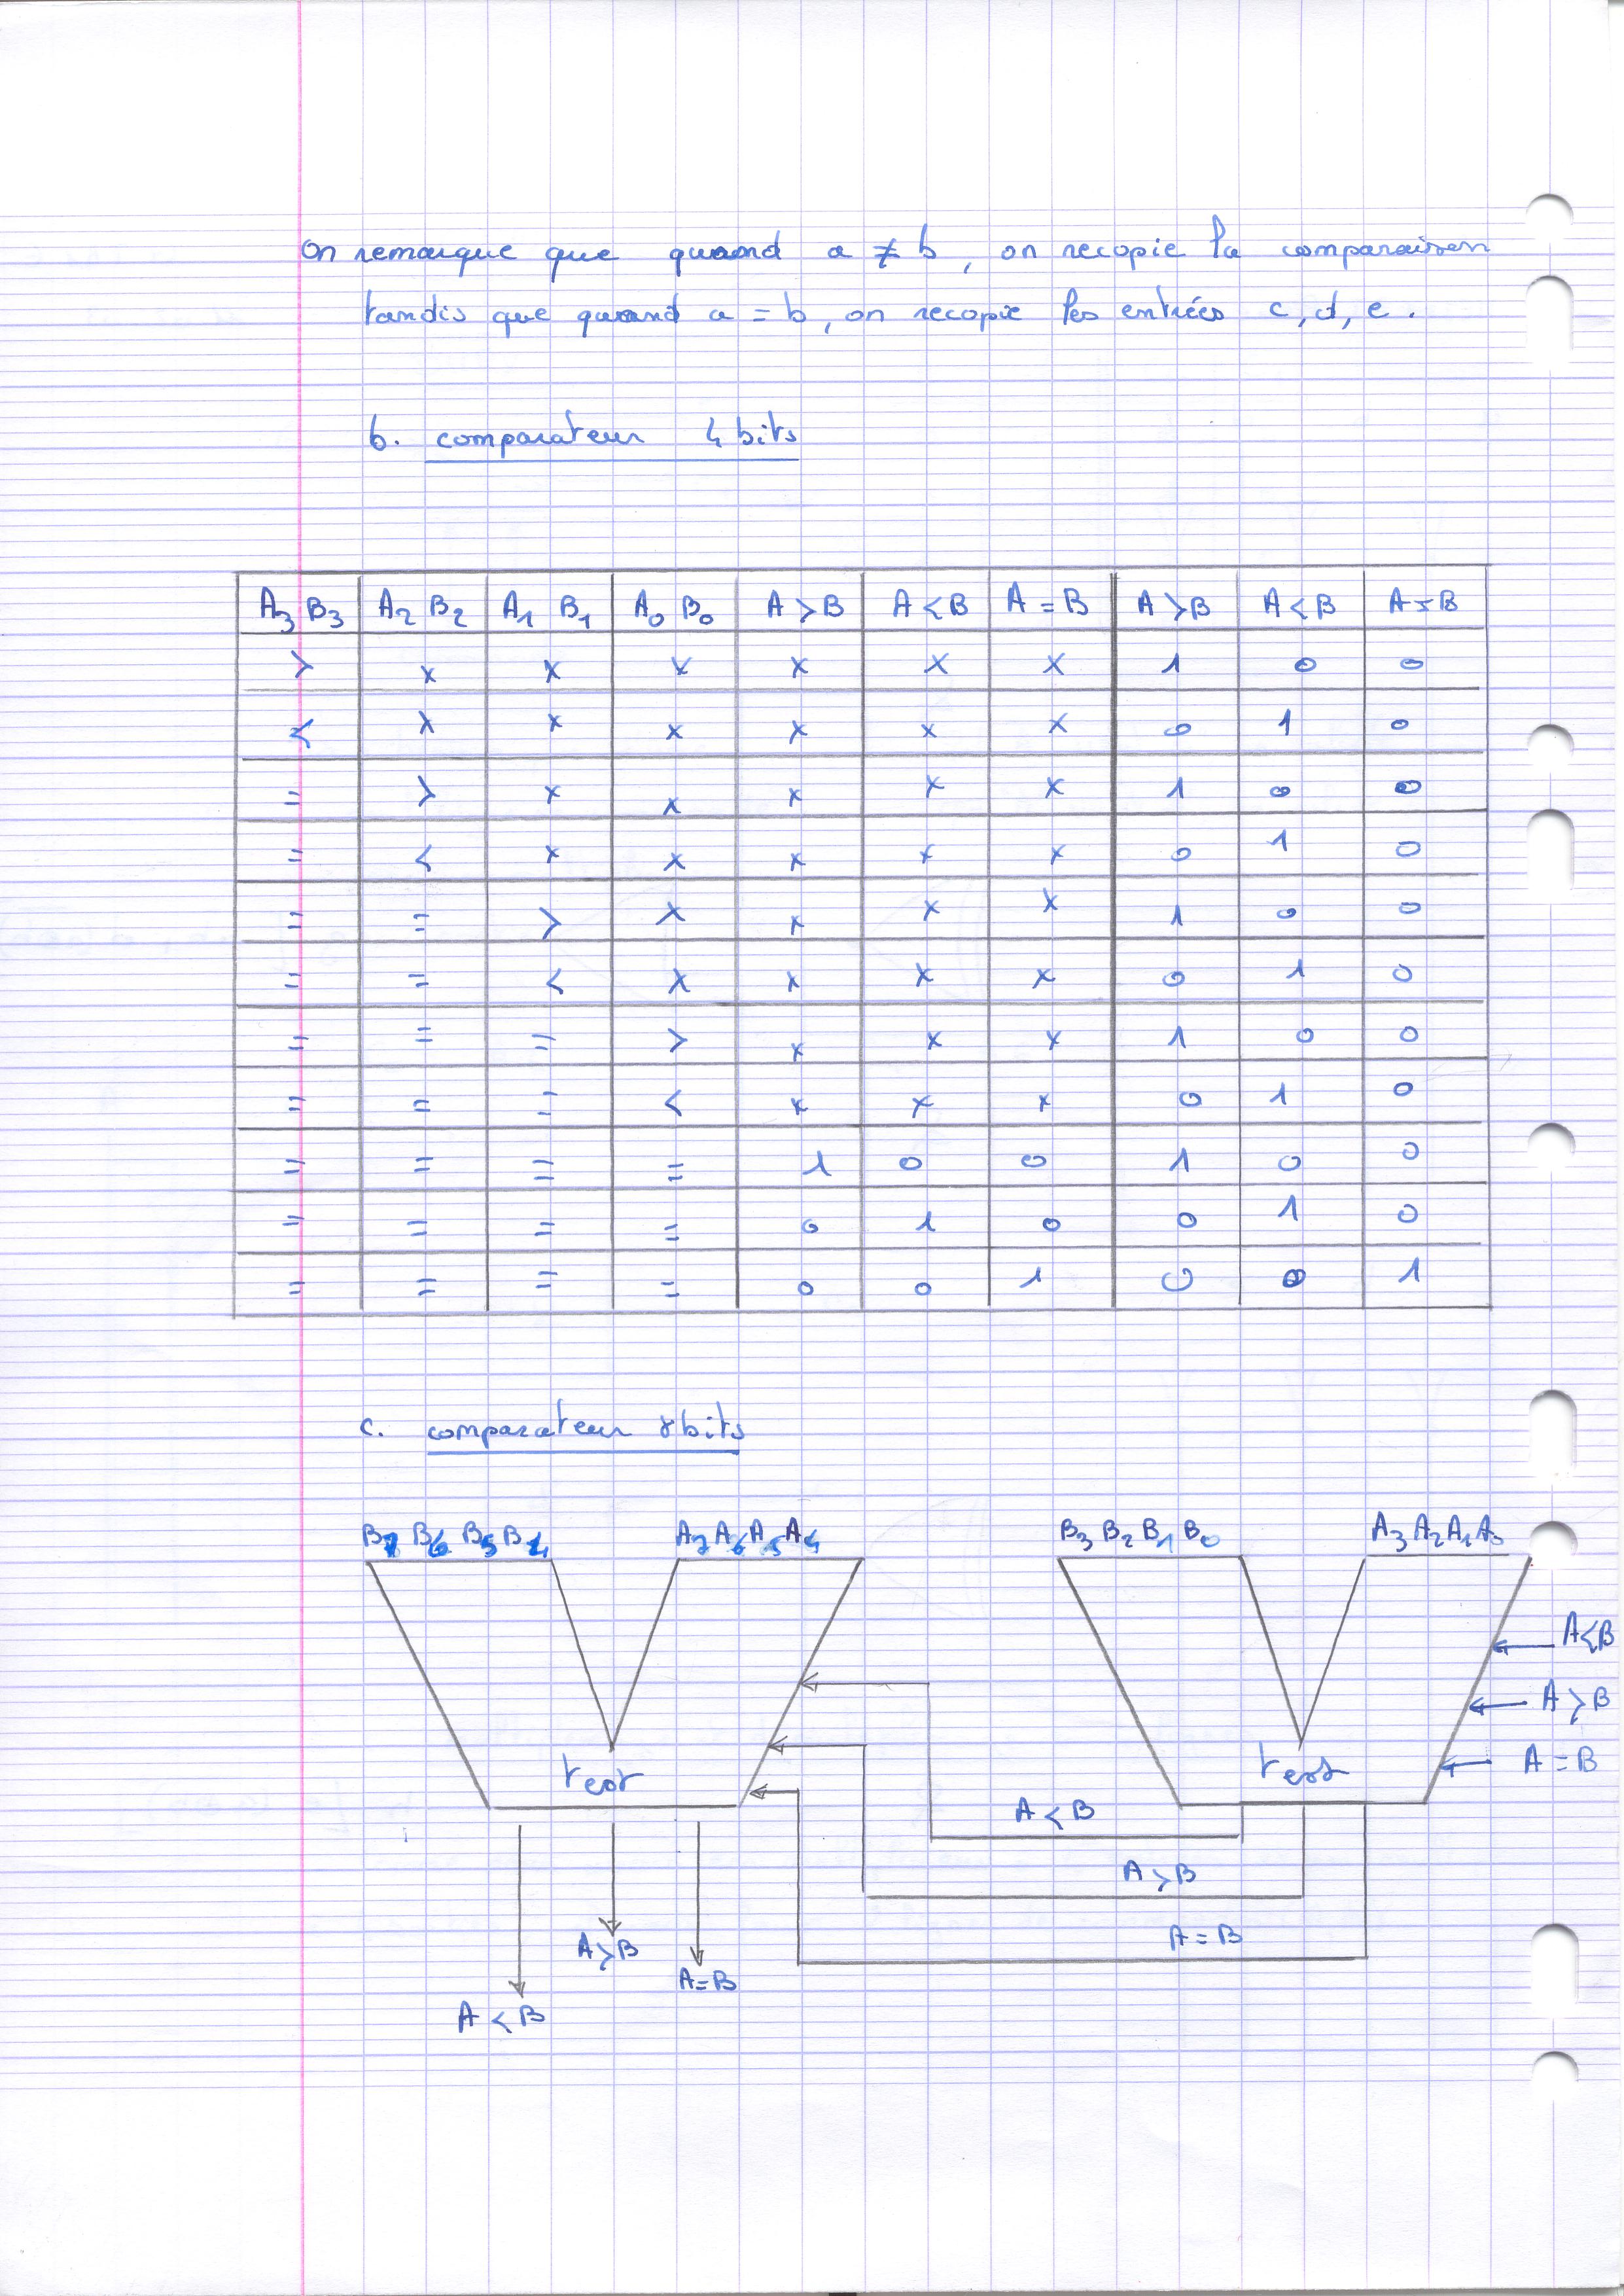 On remarque que quand a ≠ b, on recopie la comparaison
tandis que quand a = b, on recopie les entrées c, d, e.
b. comparateur 4 bits
A₃ B₃ A₂ B₂ A₁ B₁ A₀ B₀ A > B A < B A = B A > B A < B A = B
> x x x x x x 1 0 0
< x x x x x x 0 1 0
= > x x x x x 1 0 0
= < x x x x x 0 1 0
= = > x x x x 1 0 0
= = < x x x x 0 1 0
= = = > x x x 1 0 0
= = = < x x x 0 1 0
= = = = 1 0 0 1 0 0
= = = = 0 1 0 0 1 0
= = = = 0 0 1 0 0 1
c. comparateur 8 bits
B₇ B₆ B₅ B₄ A₇ A₆ A₅ A₄ B₃ B₂ B₁ B₀ A₃ A₂ A₁
A < B
A > B
A = B
test test
A < B
A > B
A = B
A > B
A = B
A < B